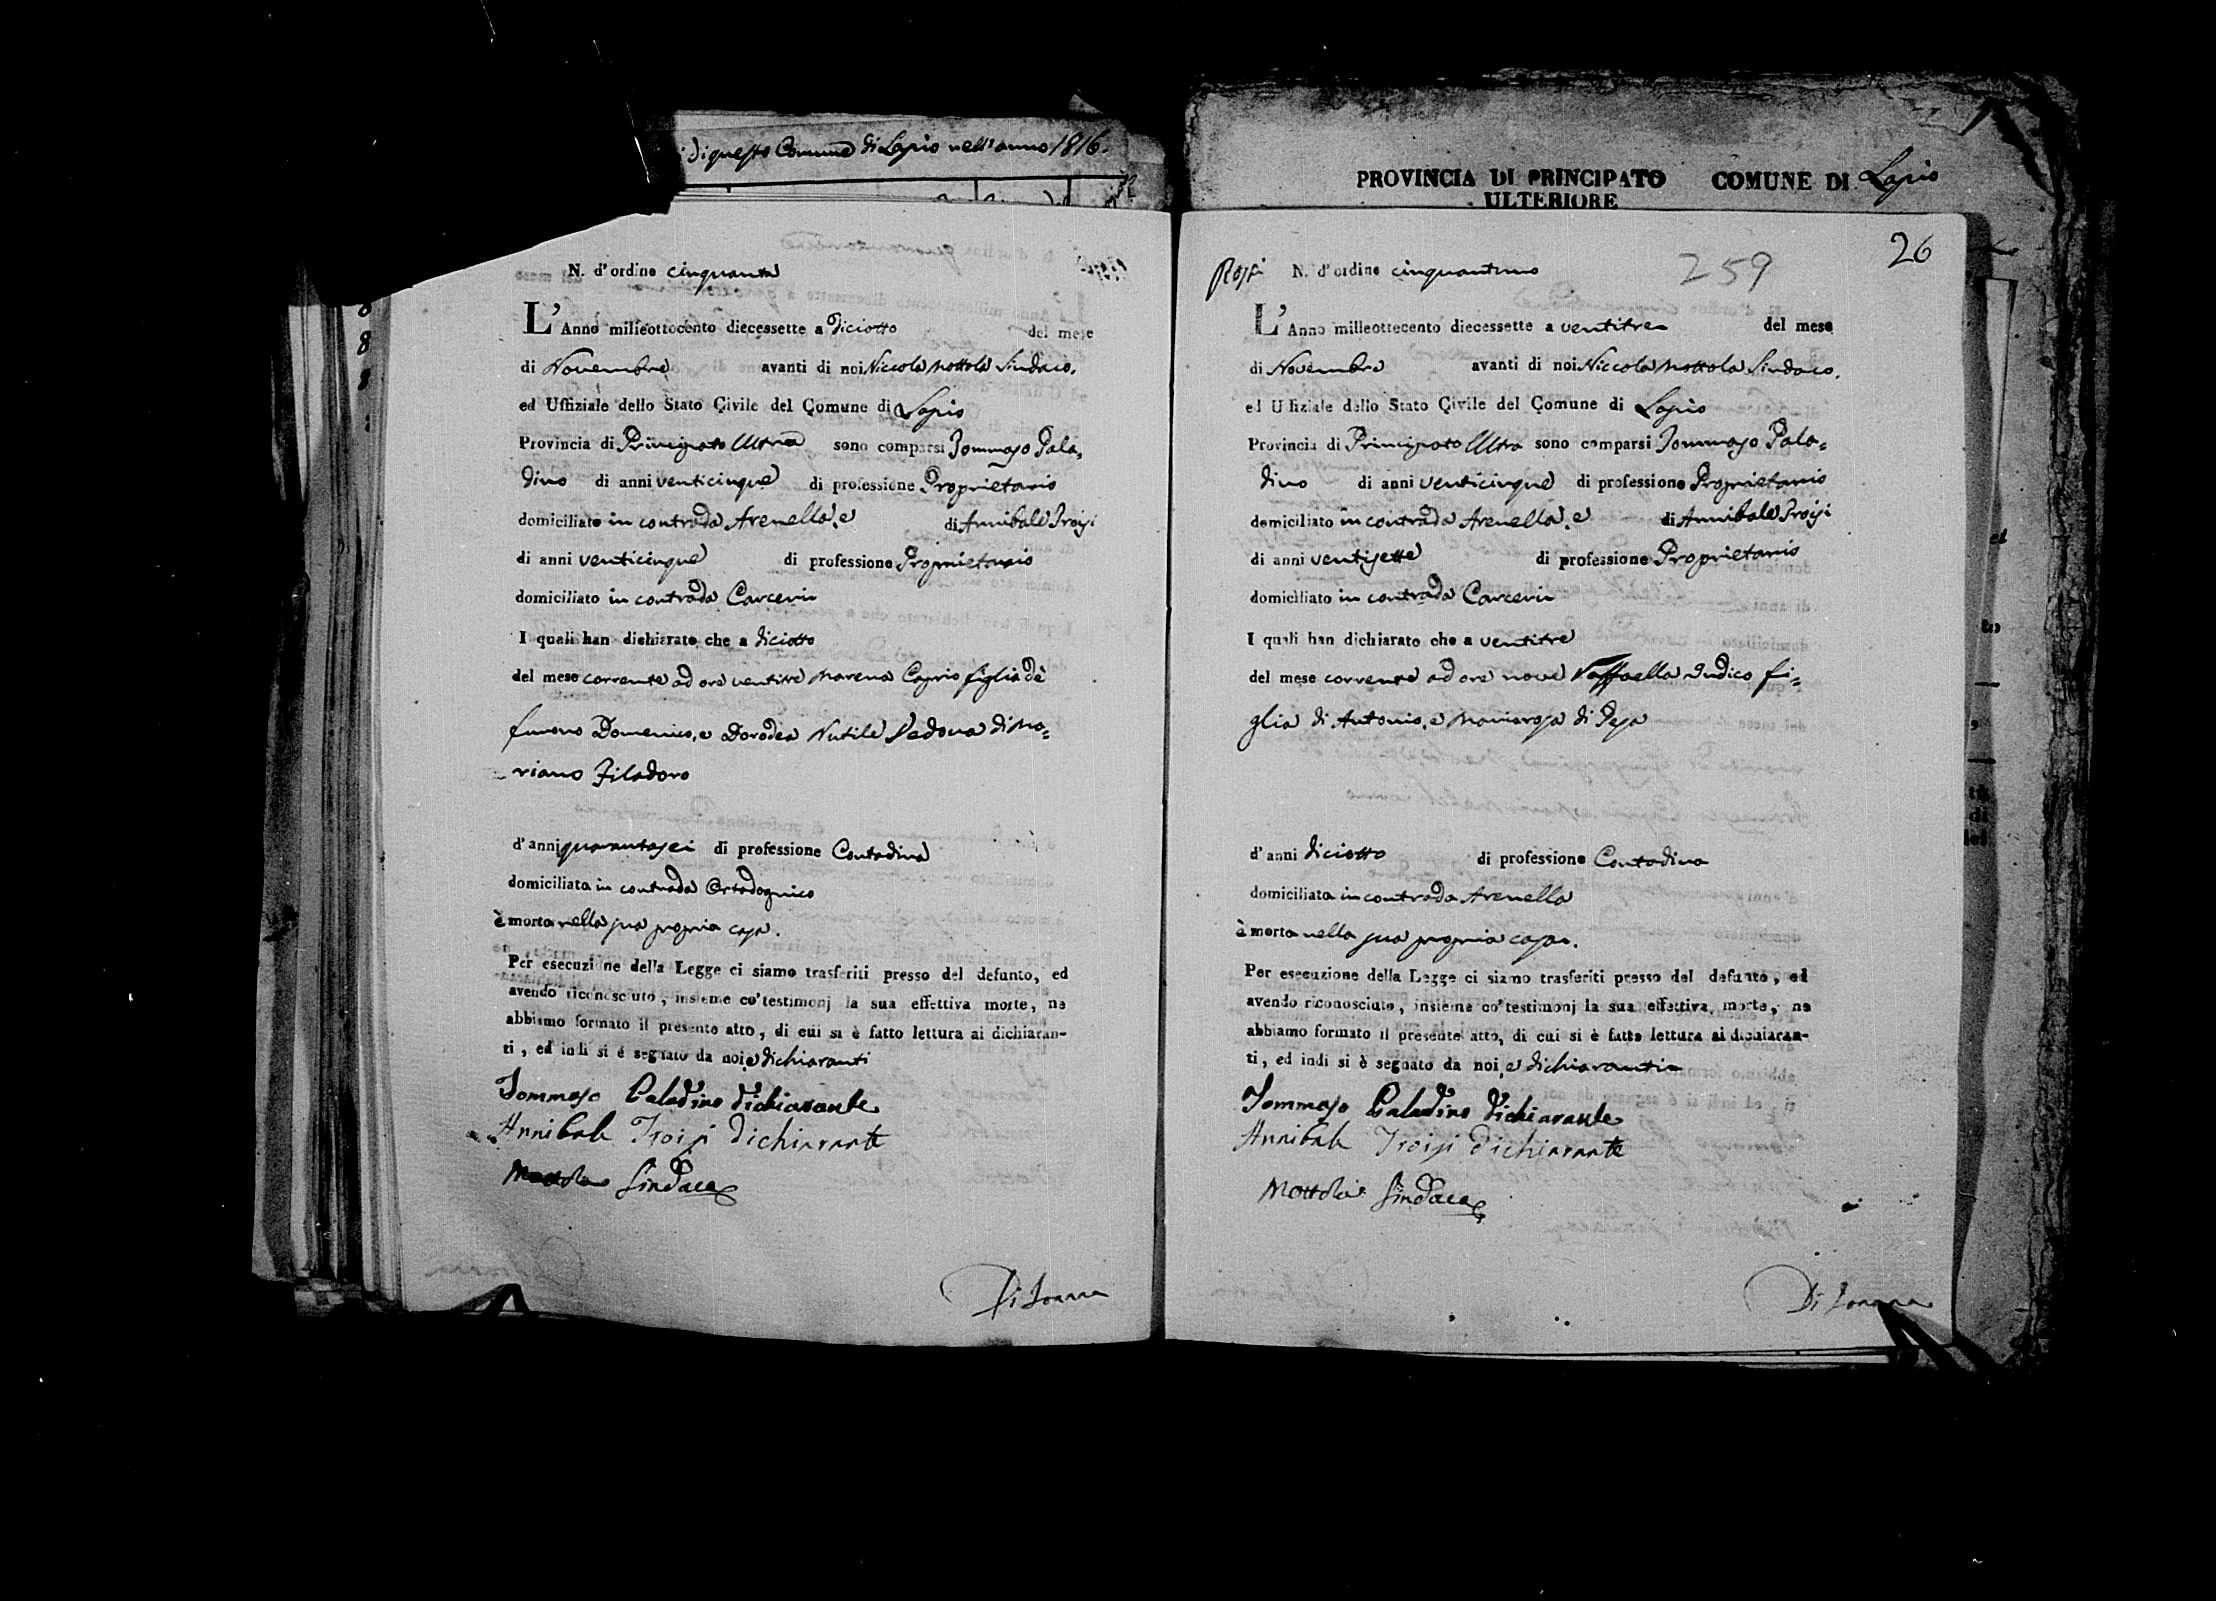 di questo Comune di Lapio nell'anno 1816.
N. d'ordine cinquanta
L'Anno milleottocento diecessette a diciotto del mese
di Novembre avanti di noi Niccola Mottola Sindaco,
ed Uffiziale dello Stato Civile del Comune di Lapio
Provincia di Principato Ultra sono comparsi Tommaso Pala,
dino di anni venticinque di professione Proprietario
domiciliato in contrada Arenella, e di Annibale Troisi
di anni venticinque di professione Proprietario
domiciliato in contrada Carceri
I quali han dichiarato che a diciotto
del mese corrente ad ore ventitre Marena Caprio figlia de
furono Domenico, e Dorodea Nutile Vedova di Ma=
riano Filadoro
d'anni quarantasei di professione Contadina
domiciliata in contrada Ortadognico
è morta nella sua propria casa.
Per esecuzione della Legge ci siamo trasferiti presso del defunto, ed
avendo riconosciuto, insieme co'testimonj la sua effettiva morte, ne
abbiamo formato il presente atto, di cui si è fatto lettura ai dichiaran-
ti, ed indi si è segnato da noi, e dichiaranti
Tommaso Paladino dichiarante
Annibale Troisi dichiarante
Mottola Sindaco
PROVINCIA DI PRINCIPATO COMUNE DI Lapio
ULTERIORE
26
259
N. d'ordine cinquantuno
L'Anno milleottocento diecessette a ventitre del mese
di Novembre avanti di noi Niccola Mottola Sindaco,
ed Uffiziale dello Stato Civile del Comune di Lapio
Provincia di Principato Ultra sono comparsi Tommaso Pala=
dino di anni venticinque di professione Proprietario
domiciliato in contrada Arenella, e di Annibale Troisi
di anni ventisette di professione Proprietario
domiciliato in contrada Carceri
I quali han dichiarato che a ventitre
del mese corrente ad ore nove Raffaella Iudico fi=
glia di Antonio, e Mariarosa di Pesa
d'anni diciotto di professione Contadina
domiciliata in contrada Arenella
è morta nella sua propria casa.
Per esecuzione della Legge ci siamo trasferiti presso del defunto, ed
avendo riconosciuto, insieme co'testimonj la sua effettiva morte, ne
abbiamo formato il presente atto, di cui si è fatto lettura ai dichiaran-
ti, ed indi si è segnato da noi, e dichiaranti
Tommaso Paladino dichiarante
Annibale Troisi dichiarante
Mottola Sindaco